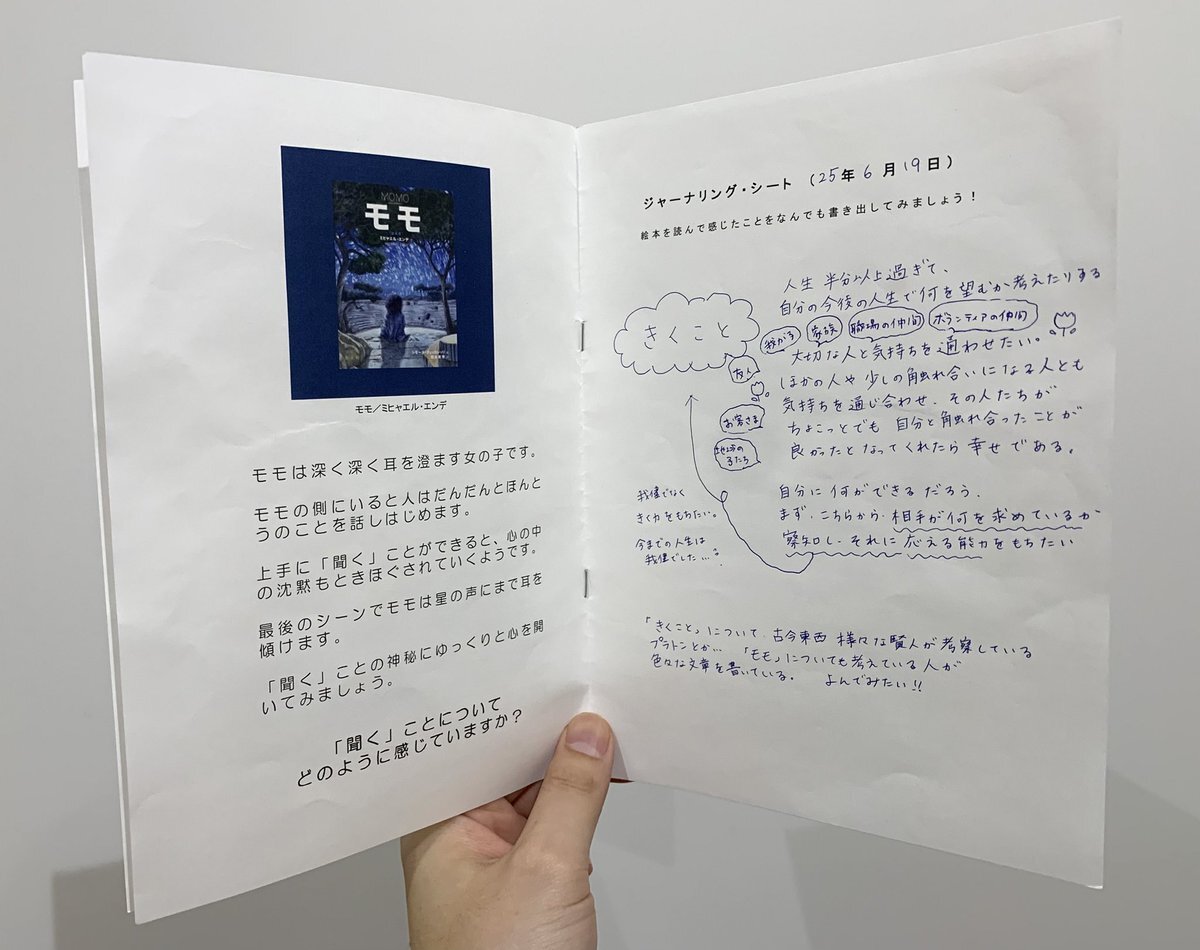 MOMO
モモ
ミヒャエル・エンデ
モモ／ミヒャエル・エンデ
モモは深く深く耳を澄ます女の子です。
モモの側にいると人はだんだんとほんと
うのことを話しはじめます。
上手に「聞く」ことができると、心の中
の沈黙もときほぐされていくようです。
最後のシーンでモモは星の声にまで耳を
傾けます。
「聞く」ことの神秘にゆっくりと心を開
いてみましょう。
「聞く」ことについて
どのように感じていますか？
ジャーナリング・シート （25年6月19日）
絵本を読んで感じたことをなんでも書き出してみましょう！
人生 半分以上過ぎて、
自分の今後の人生で何を望むか考えたりする
きくこと
我が子
家族
職場の仲間
ボランティアの仲間
大切な人と気持ちを通わせたい。
友人
ほかの人や少しの触れ合いになる人とも
気持ちを通じ合わせ、その人たちが
お客さま
ちょこっとでも 自分と触れ合ったことが
地域の
子たち
良かったとなってくれたら幸せである。
我儘でなく
きく力をもちたい。
今までの人生は
我儘でした…。
自分に何ができるだろう。
まず、こちらから、相手が何を求めているか
察知し、それに応える能力をもちたい
「きくこと」について、古今東西 様々な賢人が考察している
プラトンとか… 「モモ」についても考えている人が
色々な文章を書いている。 よんでみたい!!